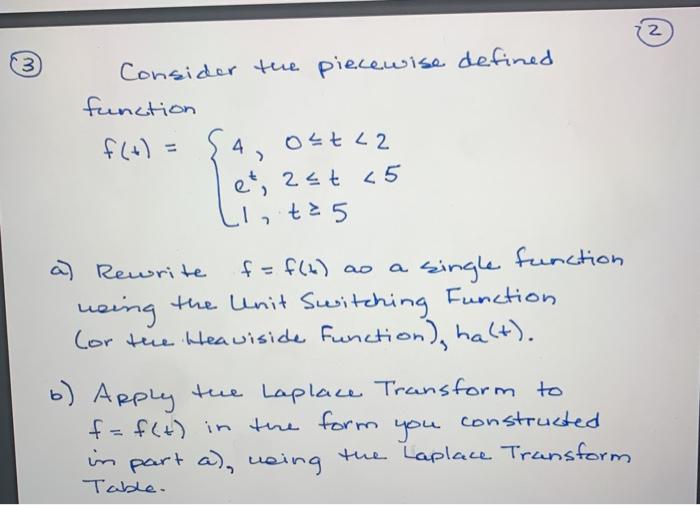 2
3 Consider the piecewise defined
function
f(t) = { 4, 0 ≤ t < 2
e^t, 2 ≤ t < 5
1, t ≥ 5
a) Rewrite f = f(t) as a single function
using the Unit Switching Function
(or the Heaviside Function), ha(t).
b) Apply the Laplace Transform to
f = f(t) in the form you constructed
in part a), using the Laplace Transform
Table.